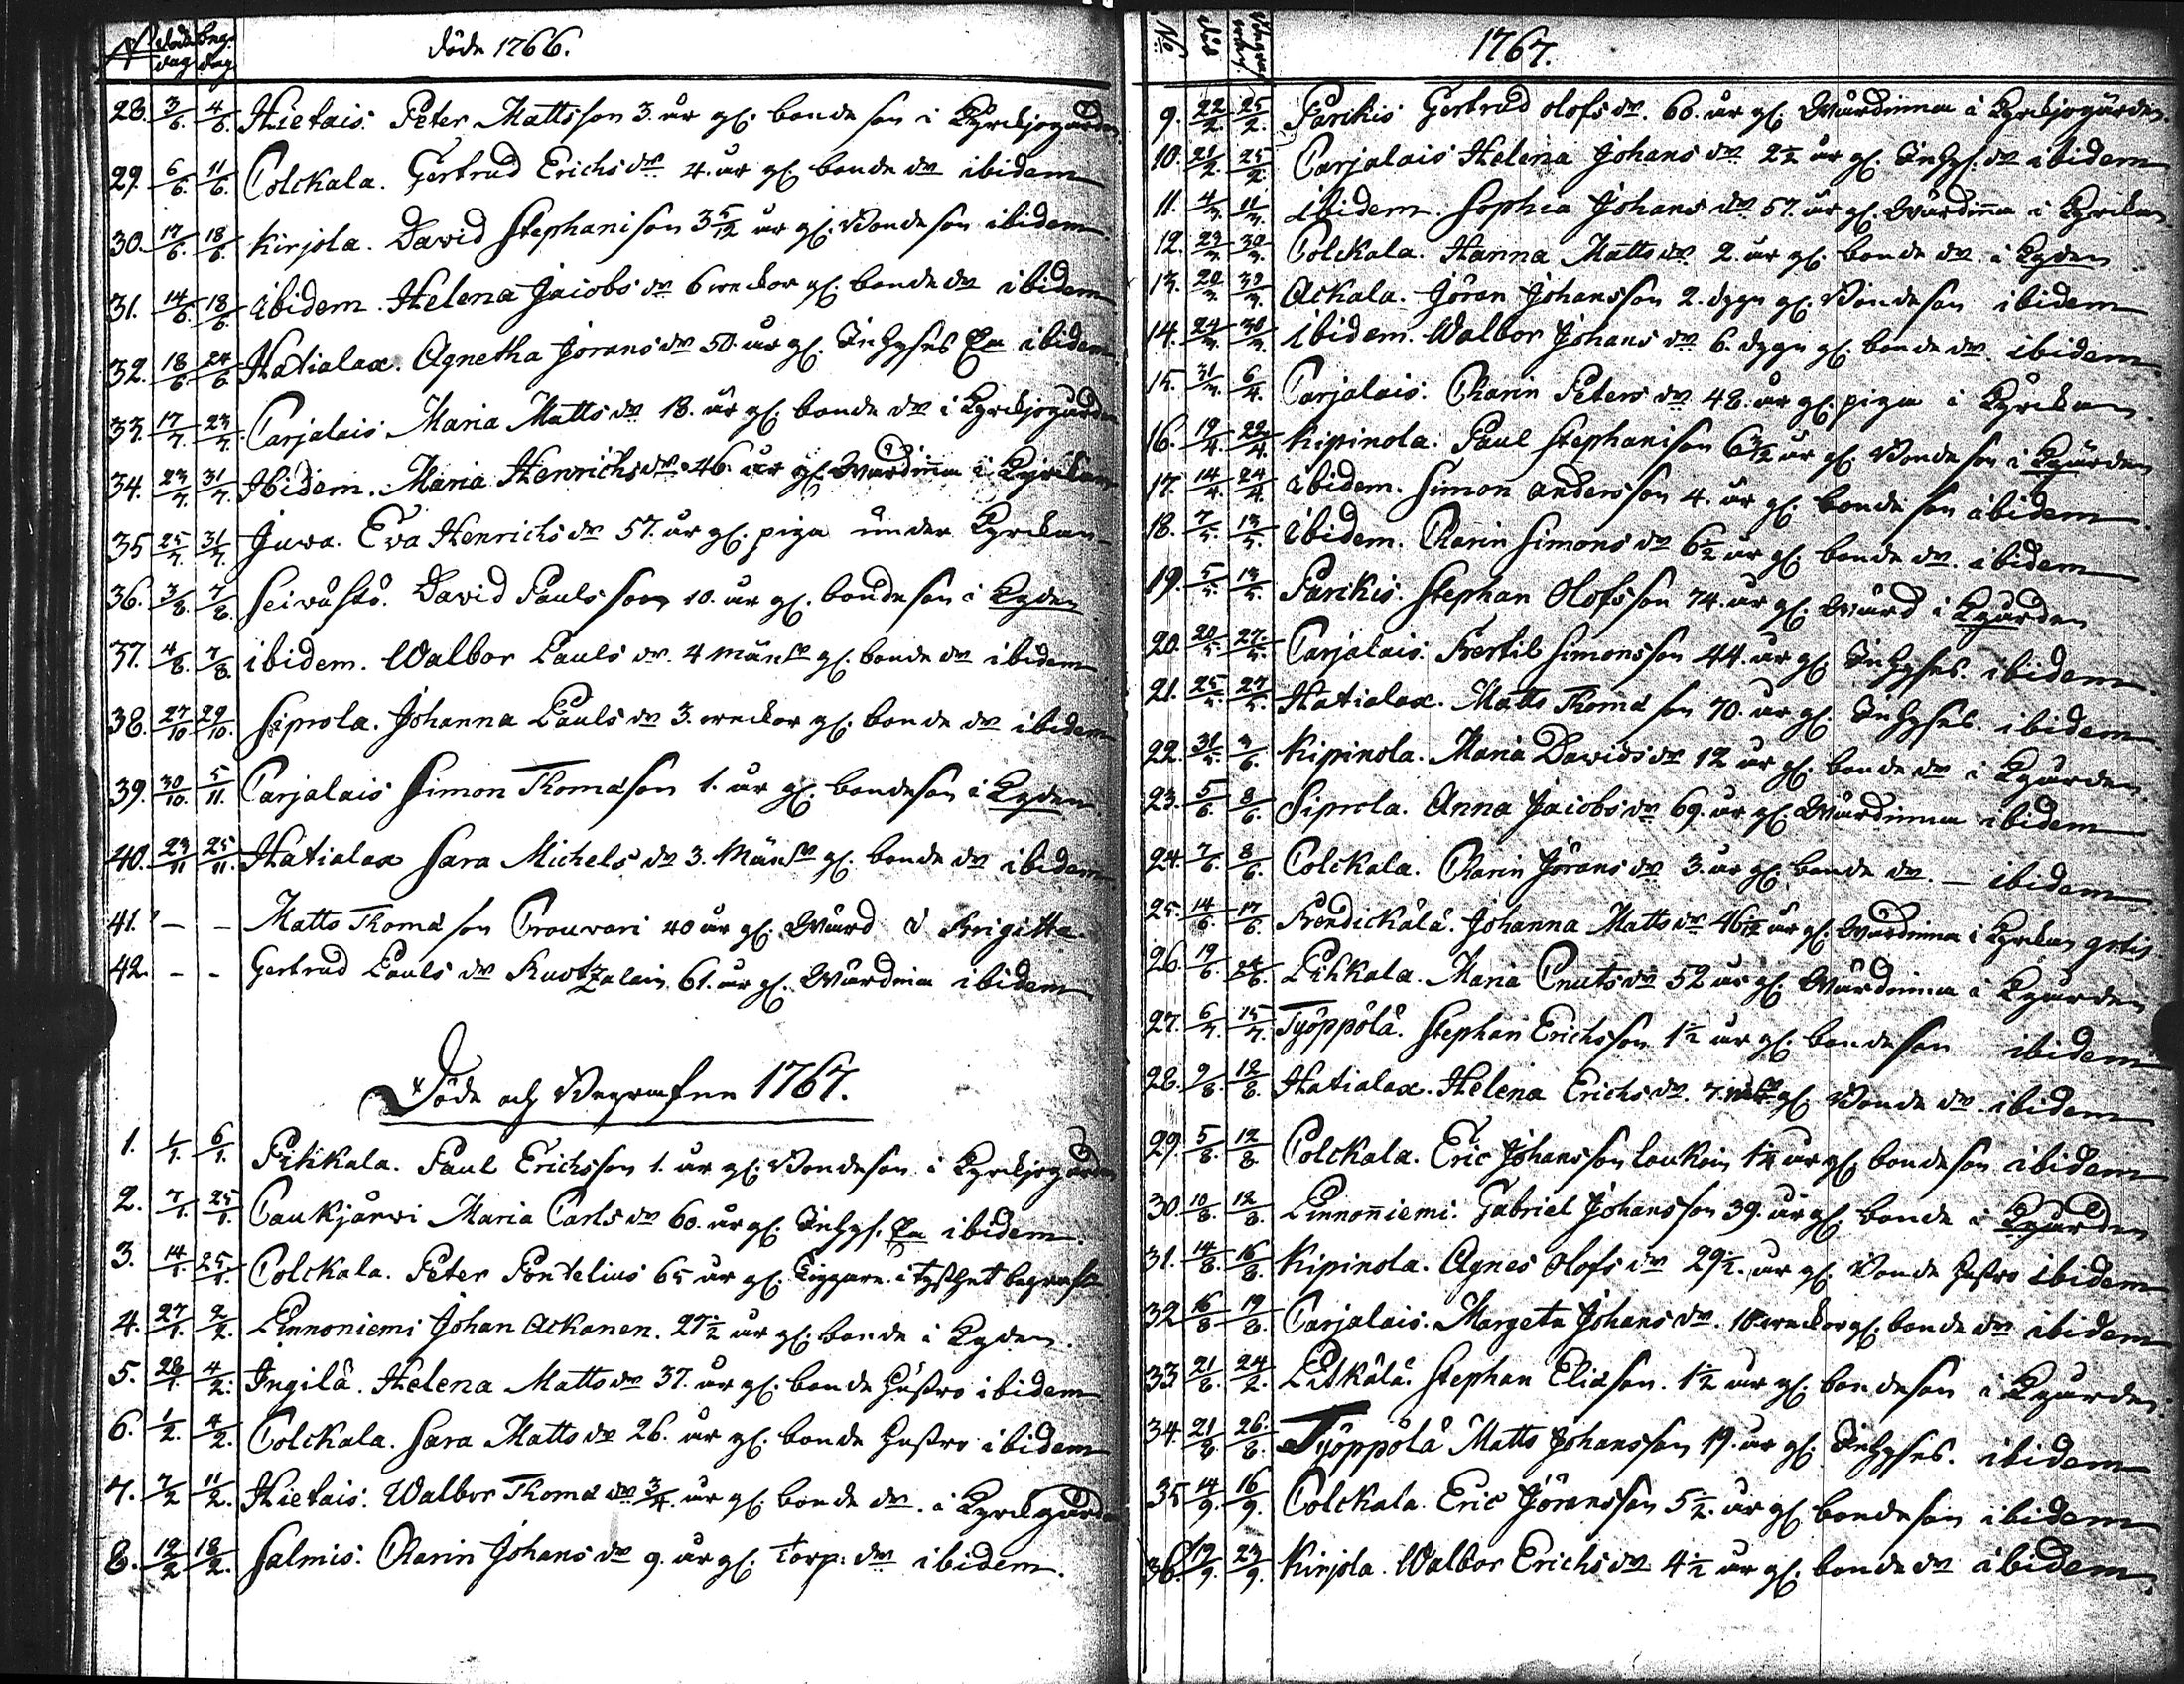 N döde dag beg. dag Döde 1766.
28. 3/6. 4/6. Hietais. Peter Mattsson 3. år gl. bonde son i Kyrckjogården
29. 6/6. 11/6. Colckala. Gertrud Erichs dr 4. år gl. bonde dr ibidem
30. 17/6. 18/6. Kirjola. David Stephanison 3 5/12 år gl. Bonde son ibidem.
31. 14/6. 18/6. ibidem. Helena Jacobs dr 6 weckor gl. bonde dr ibidem
32. 18/6. 24/6. Hatialax. Agnetha Jörans dr 50. år gl. Inhyses Ea ibidem.
33. 17/7. 23/7. Carjalais Maria Matts dr 18. år gl. bonde dr i Kyrckjogården
34. 23/7. 31/7. Ibidem. Maria Henrichs dr 46. år gl. Wärdinna i Kyrckan
35 25/7. 31/7. Juwa. Eva Henrichs dr 57. år gl. piga under Kyrckan
36. 3/8. 7/8. Seiwåstö. David Pauls son 10. år gl. bonde son i Kgden
37. 4/8. 7/8. ibidem. Walbor Pauls dr. 4 mån:r gl. bonde dr ibidem
38. 27/10 29/10. Siprola. Johanna Pauls dr 3. weckor gl. bonde dr ibidem
39. 30/10. 5/11. Carjalais Simon Thomason 1. år gl. bondeson i Kgden.
40. 23/11 25/11. Hatialax Sara Michels dr 3. Mån:r gl. bonde dr ibidem.
41. - - Matts Thoma son Prouvari 40 år gl. Wärd i Brigitta.
42. - - Gertrud Pauls dr Kuotzalain 61. år gl. Wärdina ibidem
Döde och Begrafne 1767.
1. 1/1. 6/1. Pihkala. Paul Erichsson 1. år gl. Bondeson i Kyrckjogården
2. 7/1. 25/1. Caukjärwi Maria Carls dr 60. år gl. Inhys. Ea ibidem.
3. 14/1. 25/1. Colckala. Peter Pontelius 65 år gl. Tiggare i tysthet begrafn.
4. 27/1. 2/2. Linnoniemi Johan Ackanen. 27 1/2 år gl. bonde i Kgden.
5. 28/1. 4/2. Ingilä. Helena Matts dr 37. år gl. bonde hustro ibidem
6. 1/2. 4/2. Colckala. Sara Matts dr 26. år gl. bonde hustro ibidem
7. 7/2 11/2. Hietais. Walbor Thoma dr 3/4. år gl. bonde dr. i Kyrckgården
8. 12/2 18/2. Salmis. Charin Johans dr 9. år gl. torp: dr ibidem.
No. död 1767.
9. 22/2. 25/2. Parikis Gertrud Olofs dr. 60. år gl. Wärdinna i Kyrckjogården.
10. 21/2. 25/2. Carjalais Helena Johans dr 2 1/2 år gl. Inhys. dr ibidem
11. 4/3. 11/3. ibidem. Sophia Johans dr 57. år gl. Wärdinna i Kyrckan
12. 23/3. 30/3. Colckala. Hanna Matts dr 2. år gl. bonde dr. i Kgden
13. 20/3. 30/3. Ackala. Jöran Johansson 2. dygn gl. Bonde son ibidem
14. 24/3. 30/3. ibidem. Walbor Johans dr 6. dygn gl. bonde dr. ibidem.
15. 31/3. 6/4. Carjalais. Charin Peters dr 48. år gl. piga i Kyrckan.
16. 19/4. 22/4. Kipinola. Paul Stephanison år gl. Bonde son i Kgården
17. 14/4. 24/4. ibidem. Simon Andersson 4. år gl. bonde son ibidem.
18. 7/5. 13/5. ibidem. Charin Simons dr 6 1/2 år gl. bonde dr. ibidem
19. 5/5. 13/5. Parikis. Stephan Olofsson 74. år gl. Wärd i Kgården
20. 20/5. 27/5. Carjalais. Bertil Simonsson 44. år gl. Inhyses. ibidem.
21. 25/5. 27/5. Hatialax. Matts Thoma son 70. år gl. Inhyses. ibidem.
22. 31/5. 3/6. Kipinola. Maria Davids dr 12 år gl. bonde dr i Kgården.
23. 5/6. 8/6. Siprola. Anna Jacobs dr 69. år gl. Wärdinna ibidem
24. 7/6. 8/6. Colckala. Charin Jörans dr 3. år gl. bonde dr. - ibidem
25. 14/6. 17/6. Bendickälä. Johanna Matts dr år gl. Wärdinna i Kyrckan gratis
26. 19/6. 24/6. Pihkala. Maria Cnuts dr 52 år gl. Wärdinna i Kgården
27. 6/7. 15/7. Työppölä. Stephan Erichsson 1 1/2 år gl. bonde son ibidem
28. 9/8. 12/8. Hatialax. Helena Erichs dr. 7. gl. Bonde dr. ibidem
29. 5/8. 12/8. Colckala. Eric Johansson Loukain 1 1/4 år gl. bonde son ibidem
30. 10/8. 12/8. Linnoniemi. Gabriel Johansson 39. år gl. bonde i Kgården
31. 14/8. 16/8. Kipinola. Agnes Olofs dr 29 1/2. år gl. Bonde hustro ibidem
32 16/8 19/8. Carjalais. Margeta Johans dr. 10 weckor gl. bonde dr ibidem
33 21/8. 24/2. Pitkälä. Stephan Eliason. 1 1/2 år gl. bondeson i Kgården.
34. 21/8 26/8. Työppölä Matts Johansson 19. år gl. Inhyses. ibidem
35 14/9. 16/9. Colckala. Eric Jöransson 5 1/2. år gl. bonde son ibidem
36. 19/9. 23/9. Kirjola. Walbor Erichs dr 4 1/2 år gl. bonde dr ibidem.